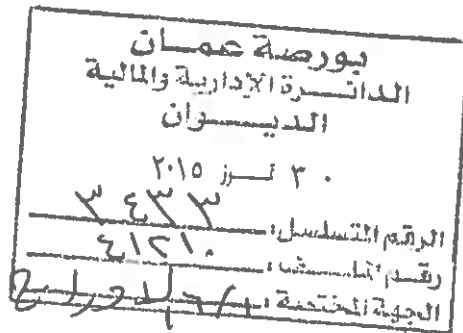 بورصة عمان
الدائرة الإدارية والمالية
الديوان
٣٠ تموز ٢٠١٥
الرقم المتسلسل: ٣٤٣٣
رقم الملف: ٤١٢١٠
الجهة المختصة: الإدراج